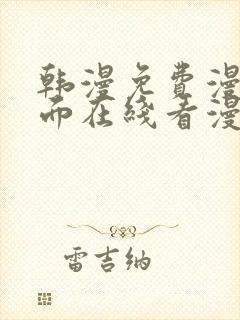 韩漫免费漫
而在线看漫
雷吉纳